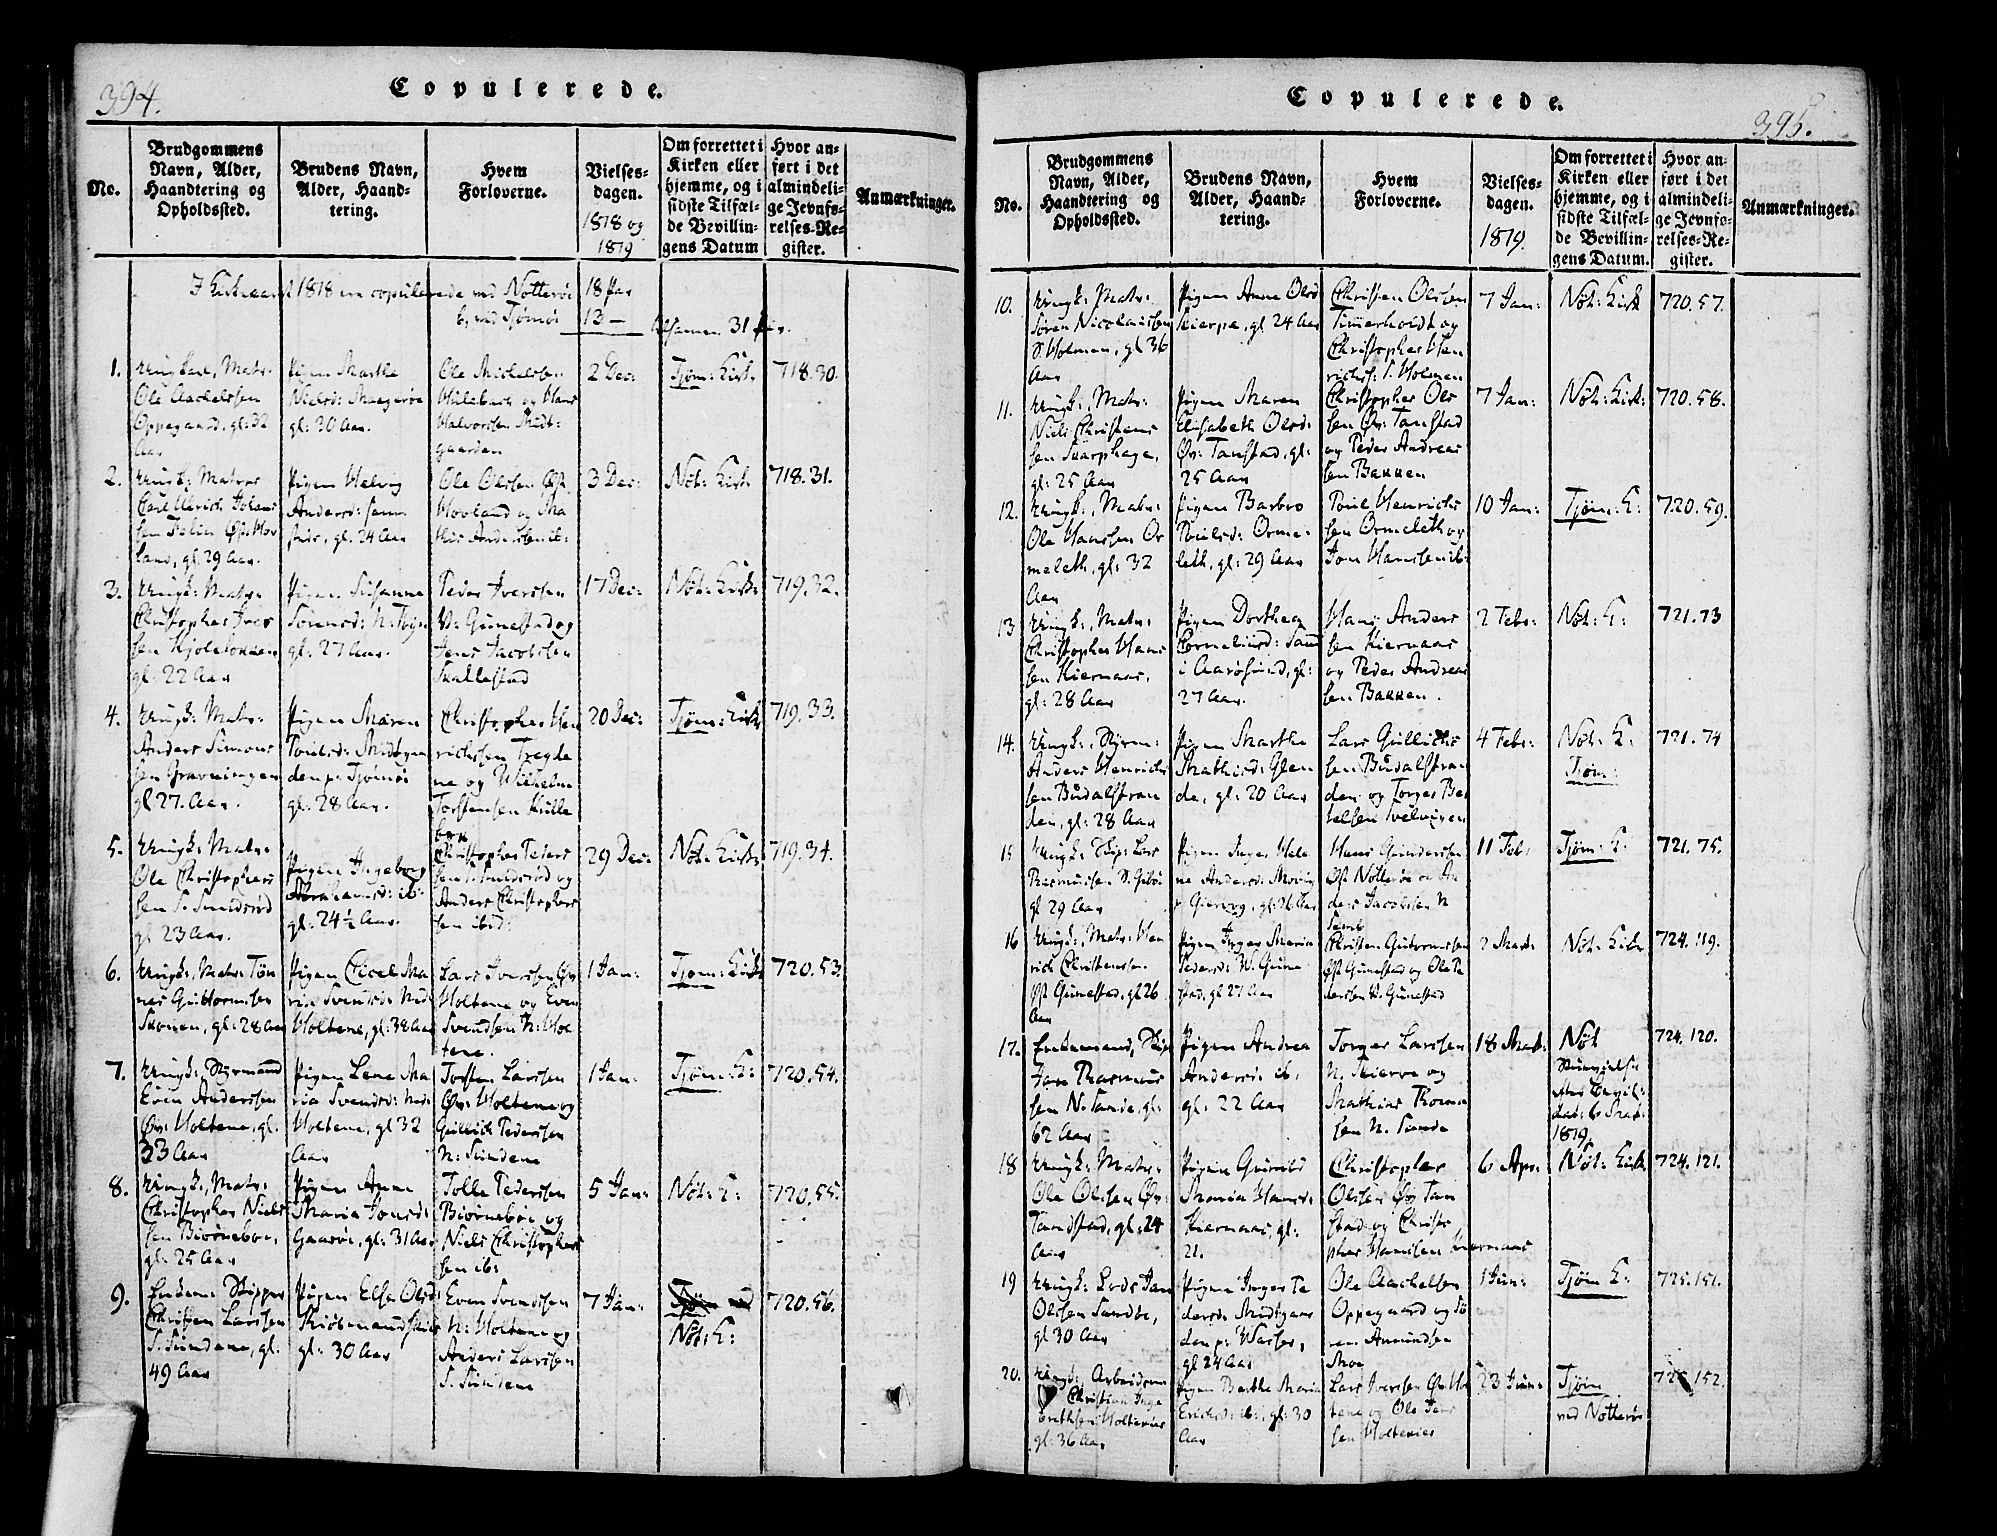 394.
Copulerede.
No.
Brudgommens
Navn, Alder,
Haandtering og
Opholdssted.
Brudens Navn,
Alder, Haand-
tering.
Hvem
Forloverne.
Vielses-
dagen.
1818 og
1819
Om forrettet i
Kirken eller
hjemme, og i
sidste Tilfæl-
de Bevillin-
gens Datum
Hvor an-
ført i det
almindeli-
ge Jevnfø-
relses-Re-
gister.
Anmærkninger.
I Kirkeaaret 1818 ere copulerede ved Nøtterøe 18 Par
ved Tjømøe 13 —
tilsamen 31 Par.
1.
Ungkarl, Matr:
Ole Aachelssen
Oppegaard, gl: 32
Aar
Pigen Marthe
Nielsd: Magerøe
gl: 30 Aar.
Ole Michelsen
Hulebach og Hans
Halvorsen Midt-
gaarden
2 Dec:
Tjøm: Kirk
718.30.
2.
Ungk: Matros
Carl Ulrich Johans
sen Øst: Hov
land, gl: 29 Aar.
Pigen Helvig
Andersd:
gl: 24 Aar
Ole Olssen Øst.
Hovland og Ma
this Anderssen ib:
3 Dec:
Nöt: Kirk
718.31.
3.
Ungk: Matr:
Christopher Iver
sen Kjølebakken
gl: 22 Aar
Pigen Susanne
Sørensd:
gl: 27 Aar.
Peder Iverssen
V: Gunestad og
Jens Jacobssen
Skallestad
17 Dec:
Nöt: Kirk:
719.32.
4.
Ungk: Matr:
Anders Simons
sen Gravningen
gl 27. Aar.
Pigen Maren
Poulsd:
den p: Tjømøe
gl: 28 Aar.
Christopher Hen
richssen Tregde
ne og Wilhelm
Torstensen Hulle
bak
20 Dec:
Tjøm: Kirk
719.33.
5.
Ungk: Matr:
Ole Christophers
sen S. Smidsrød
gl 23 Aar.
Pigen Ingeborg
Abrahamsd: ib:
gl: 24½ Aar.
Christopher Peders
sen S. Smidsrød og
Anders Christophers
sen ibid:
29 Dec:
Nöt: Kirk
719.34.
6.
Ungk: Matr: Tøn
nes Guttormsen
gl: 28 Aar
Pigen Cicel Ma
ria Svendsd: Ned:
Holtene, gl: 38 Aar
Lars Iverssen Øv
Holtene og Even
Svendsen N: Hol
tene.
1 Jan:
Tjøm: Kirk
720.53.
7.
Ungk: Styrmand
Even Anderssen
Øv: Holtene, gl.
33 Aar
Pigen Lene Ma
ria Svendsd: Ned:
Holtene, gl 32
Aar
Torsten Larssen
Øv: Holtene og
Gullich Pederssen
N: Sundene
1 Jan:
Tjøm: K:
720.54.
8.
Ungk:, Matr:
Christopher Niels
sen Biørnebøe,
gl: 25 Aar
Pigen Anne
Maria Jonsd:
Gaarøe, gl: 31 Aar
Tolle Pederssen
Biørnebøe og
Niels Christophers
sen ib:
5 Jan:
Nöt: K:
720.55.
9.
Enkem: Skipper
Christen Larssen
S. Sundene, gl.
49 Aar
Pigen Else Olsd:
gl: 30 Aar
Even Svendssen
N: Holtene og
Anders Larssen
S. Sundene
7 Jan:
Nöt: K:
720.56.
Copulerede.
395.
No.
Brudgommens
Navn, Alder,
Haandtering og
Opholdssted.
Brudens Navn,
Alder, Haand-
tering.
Hvem
Forloverne.
Vielses-
dagen.
1819.
Om forrettet i
Kirken eller
hjemme, og i
sidste Tilfæl-
de Bevillin-
gens Datum.
Hvor an-
ført i det
almindeli-
ge Jevnfø-
relses-Re-
gister.
Anmærkninger.
10.
Ungk: Matr:
Søren Nicolaissen
S. Holmen, gl 36
Aar
Pigen Anne Olsd
gl 24 Aar
Christen Olssen
Timerholdt og
Christopher Hen
richs: S. Holmen
7 Jan:
Nöt: Kirk
720.57.
11.
Ungk:, Matr:
Niels Christens
sen Skarphage,
gl: 25 Aar
Pigen Maren
Elisabeth Olsd:
Øv: Tanstad, gl:
25 Aar
Christopher Ols
sen Øv: Tanstad
og Peder Andreas
sen Bakken
7 Jan:
Nöt: Kirk:
720.58.
12.
Ungk:, Matr:
Ole Hanssen Or
meleth, gl: 32
Aar
Pigen Barbro
Poulsd: Orme-
leth, gl: 29 Aar
Poul Henrichs
sen Ormeleth og
Jon Hanssen ib:
10 Jan:
Tjøm: K:
720.59.
13
Ungk:, Matr:
Christopher Hans
sen Kiernaas,
gl: 28 Aar
Pigen Dorthea
Corneliusd:
i Aarøsund, gl:
27 Aar.
Hans Anders
sen Kiernaas
og Peder Andreas
sen Bakken.
2 Febr:
Nöt: K:
721.73
14.
Ungk:, Styrm:
Anders Henrichs
sen Budalstran
den, gl: 28 Aar
Pigen Marthe
Mathisd: Glen
de, gl: 20 Aar
Lars Gullichs
sen Budalstran
den og Torger Ber
telsen Tvelvigen
4 Febr:
Nöt: K:
Tjøm:
721.74
15
Ungk: Skip: Lars
Rasmussen S.
gl 29 Aar
Pigen Inger Hele
ne Andersd:
gl: 26 Aar
Hans Gunderssen
Øst Nøtterøe og An
ders Jacobssen N
11 Feb:
Tjøm: K:
721.75.
16
Ungk:, Matr: Hen
rich Christenssen
Øst Gunestad, gl 26
Aar
Pigen Inger Maria
Pedersd: W. Gune
stad, gl 27 Aar
Christen Guttormssen
Øst Gunestad og Ole Pe
derssen V. Gunestad
2 Mart:
Nöt: Kirk
724.119.
17.
Enkemand, Skip:
Jon Rasmus
sen N. Sande, gl.
62 Aar
Pigen Andrea
Andersd: ib:
gl: 22 Aar
Torger Larssen
N. Skierve og
Mathias Thom
sen N. Sunde
18 Mart:
Nöt
efter Bevil:
dat: 6 Mart:
1819.
724.120.
18
Ungk:, Matr:
Ole Olssen Øv:
Tandstad, gl: 24
Aar
Pigen Gunild
Maria Hansd:
Kiernaas, gl:
21.
Christopher
Olssen Øv Tan
stad og Christo
pher Hanssen Kiernaas
6 Apr:
Nöt: Kirk
724.121.
19
Ungk: Lods Jan
Olssen Sandøe,
gl 30 Aar
Pigen Inger Pe
dersd: Midtgaar
den p:
gl 24 Aar
Ole Aachelssen
Oppegaard og Sø
ren Amundsen
Moe
1 Jun:
Tjøm K:
725.151.
20.
Ungk:, Arbeidsm
Christian Inge
brethsen Holtekier
gl: 36 Aar
Pigen Berthe Maria
Ericksd: ib:, gl: 30
Aar
Lars Iverssen Øv: Hol
tene og Ole Jans
sen Holtekier
23 Jun:
Tjøm
ved Nøtterøe
725.152.